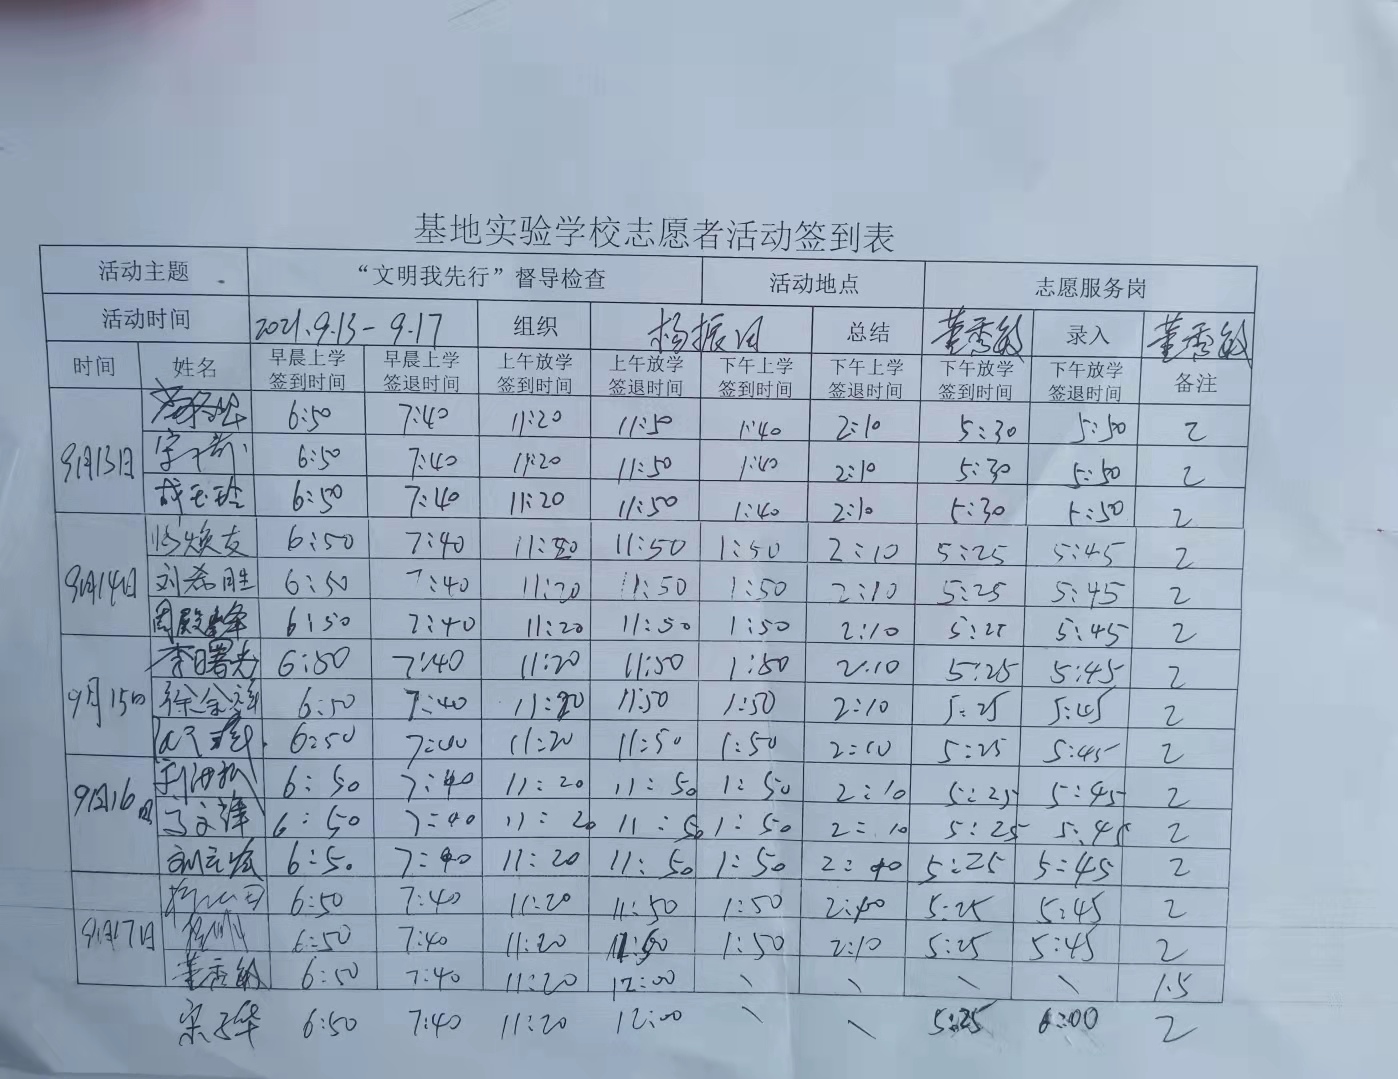 基地实验学校志愿者活动签到表
活动主题 “文明我先行”督导检查 活动地点 志愿服务岗
活动时间 2021.9.13-9.17 组织 杨振国 总结 董秀敏 录入 董秀敏
时间 姓名 早晨上学签到时间 早晨上学签退时间 上午放学签到时间 上午放学签退时间 下午上学签到时间 下午上学签退时间 下午放学签到时间 下午放学签退时间 备注
9月13日 6:50 7:40 11:20 11:50 1:40 2:10 5:30 5:50 2
6:50 7:40 11:20 11:50 1:40 2:10 5:30 5:50 2
6:50 7:40 11:20 11:50 1:40 2:10 5:30 5:50 2
9月14日 焕友 6:50 7:40 11:20 11:50 1:50 2:10 5:25 5:45 2
刘希胜 6:50 7:40 11:20 11:50 1:50 2:10 5:25 5:45 2
周殿峰 6:50 7:40 11:20 11:50 1:50 2:10 5:25 5:45 2
9月15日 李曙光 6:50 7:40 11:20 11:50 1:50 2:10 5:25 5:45 2
徐金 6:50 7:40 11:20 11:50 1:50 2:10 5:25 5:45 2
6:50 7:40 11:20 11:50 1:50 2:10 5:25 5:45 2
9月16日 6:50 7:40 11:20 11:50 1:50 2:10 5:25 5:45 2
6:50 7:40 11:20 11:50 1:50 2:10 5:25 5:45 2
6:50 7:40 11:20 11:50 1:50 2:10 5:25 5:45 2
9月17日 6:50 7:40 11:20 11:50 1:50 2:10 5:25 5:45 2
6:50 7:40 11:20 11:50 1:50 2:10 5:25 5:45 2
董秀敏 6:50 7:40 11:20 12:00 \ \ \ \ 1.5
宋子华 6:50 7:40 11:20 12:00 \ \ 5:25 6:00 2